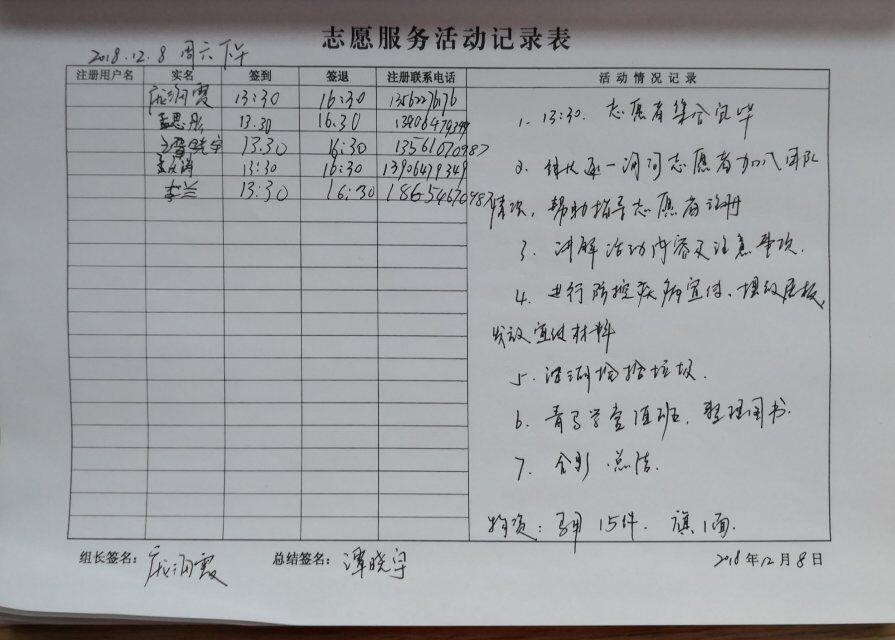 志愿服务活动记录表
2018.12.8 周六下午
注册用户名 实名 签到 签退 注册联系电话 活动情况记录
庞润霞 13:30 16:30
孟思彤 13.30 16.30
13.30 16:30 13561070987
13:30 16:30 13906479349
李兰 13:30 16:30
1. 13:30. 志愿者集合完毕
2. 组长逐一询问志愿者加入团队
情况, 帮助指导志愿者注册
3. 讲解活动内容及注意事项.
4. 进行防控疾病宣传、摆放展板,
发放宣传材料
5. 沿湖捡拾垃圾.
6. 青鸟学堂值班, 整理图书.
7. 合影 .总结.
物资: 马甲 15件. 旗1面.
组长签名: 庞润霞 总结签名: 谭晓宇 2018年12月8日